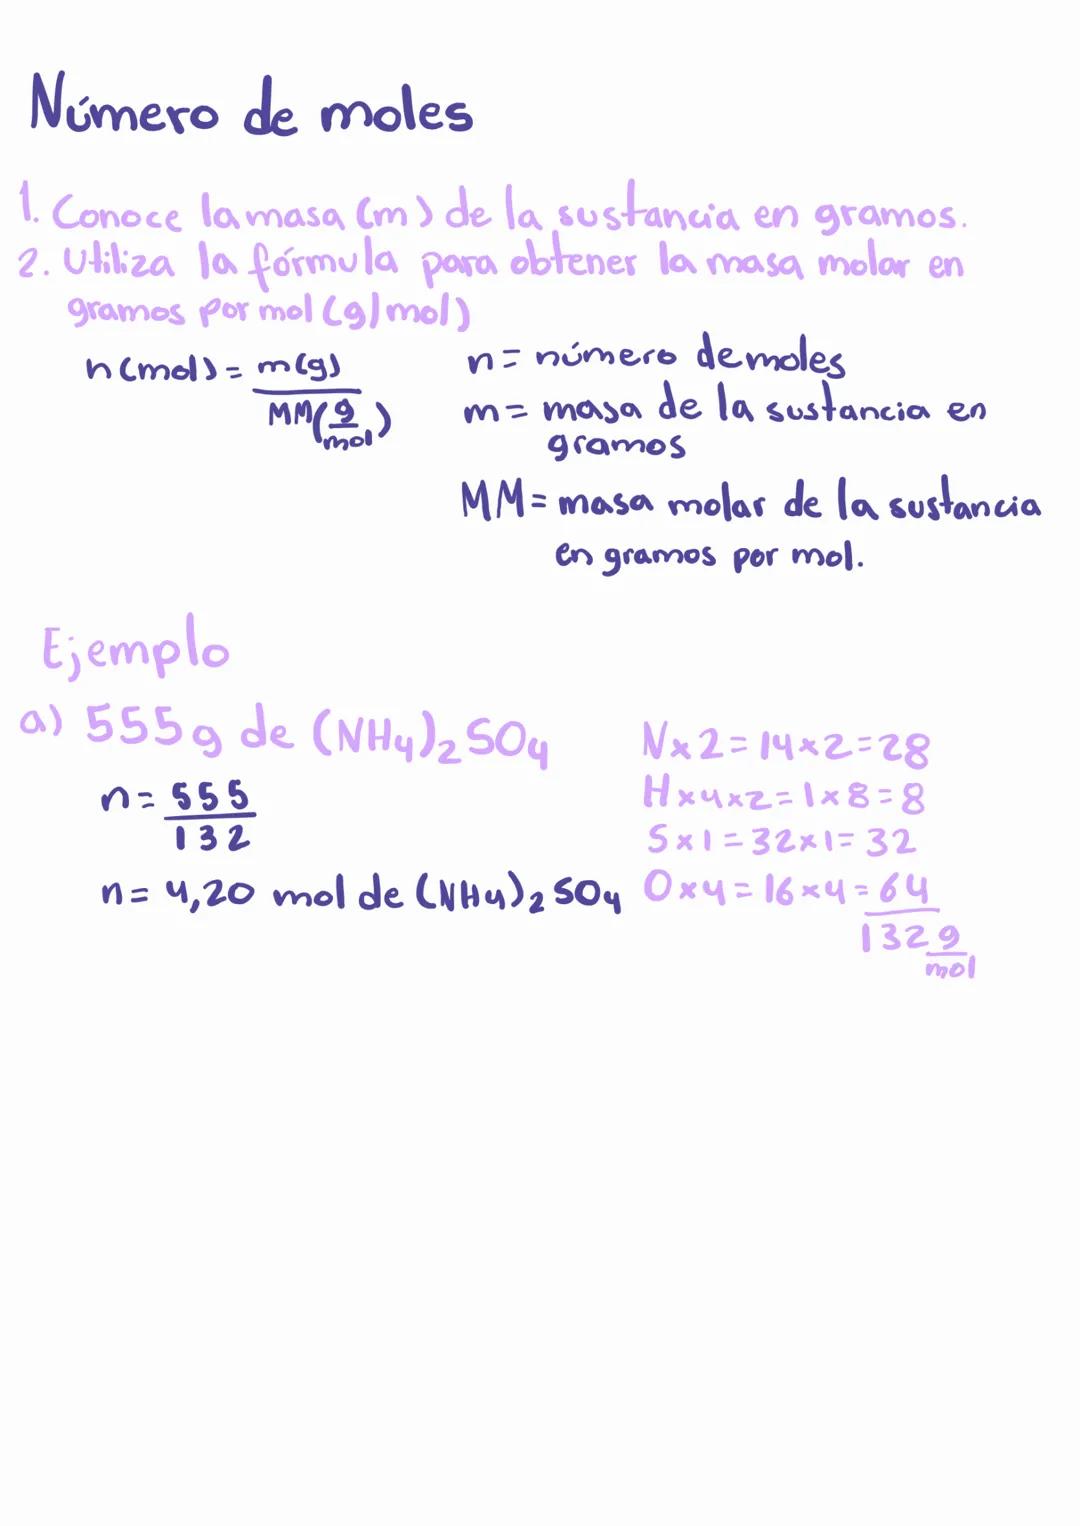 Número de moles
1. Conoce la masa (m) de la sustancia en gramos.
2. Utiliza la fórmula para obtener la masa molar en
gramos por mol (g/mol)
n(mol) = m(g)
MM(g
mol)
n = número de moles
m = masa de la sustancia en
gramos
MM = masa molar de la sustancia
en gramos por mol.
Ejemplo
a) 555g de (NH4)2 SO4
n = 555
132
n = 4,20 mol de (NH4)2 SO4
N x 2 = 14 x 2 = 28
H x 4 x 2 = 1 x 8 = 8
S x 1 = 32 x 1 = 32
O x 4 = 16 x 4 = 64
132 g
mol